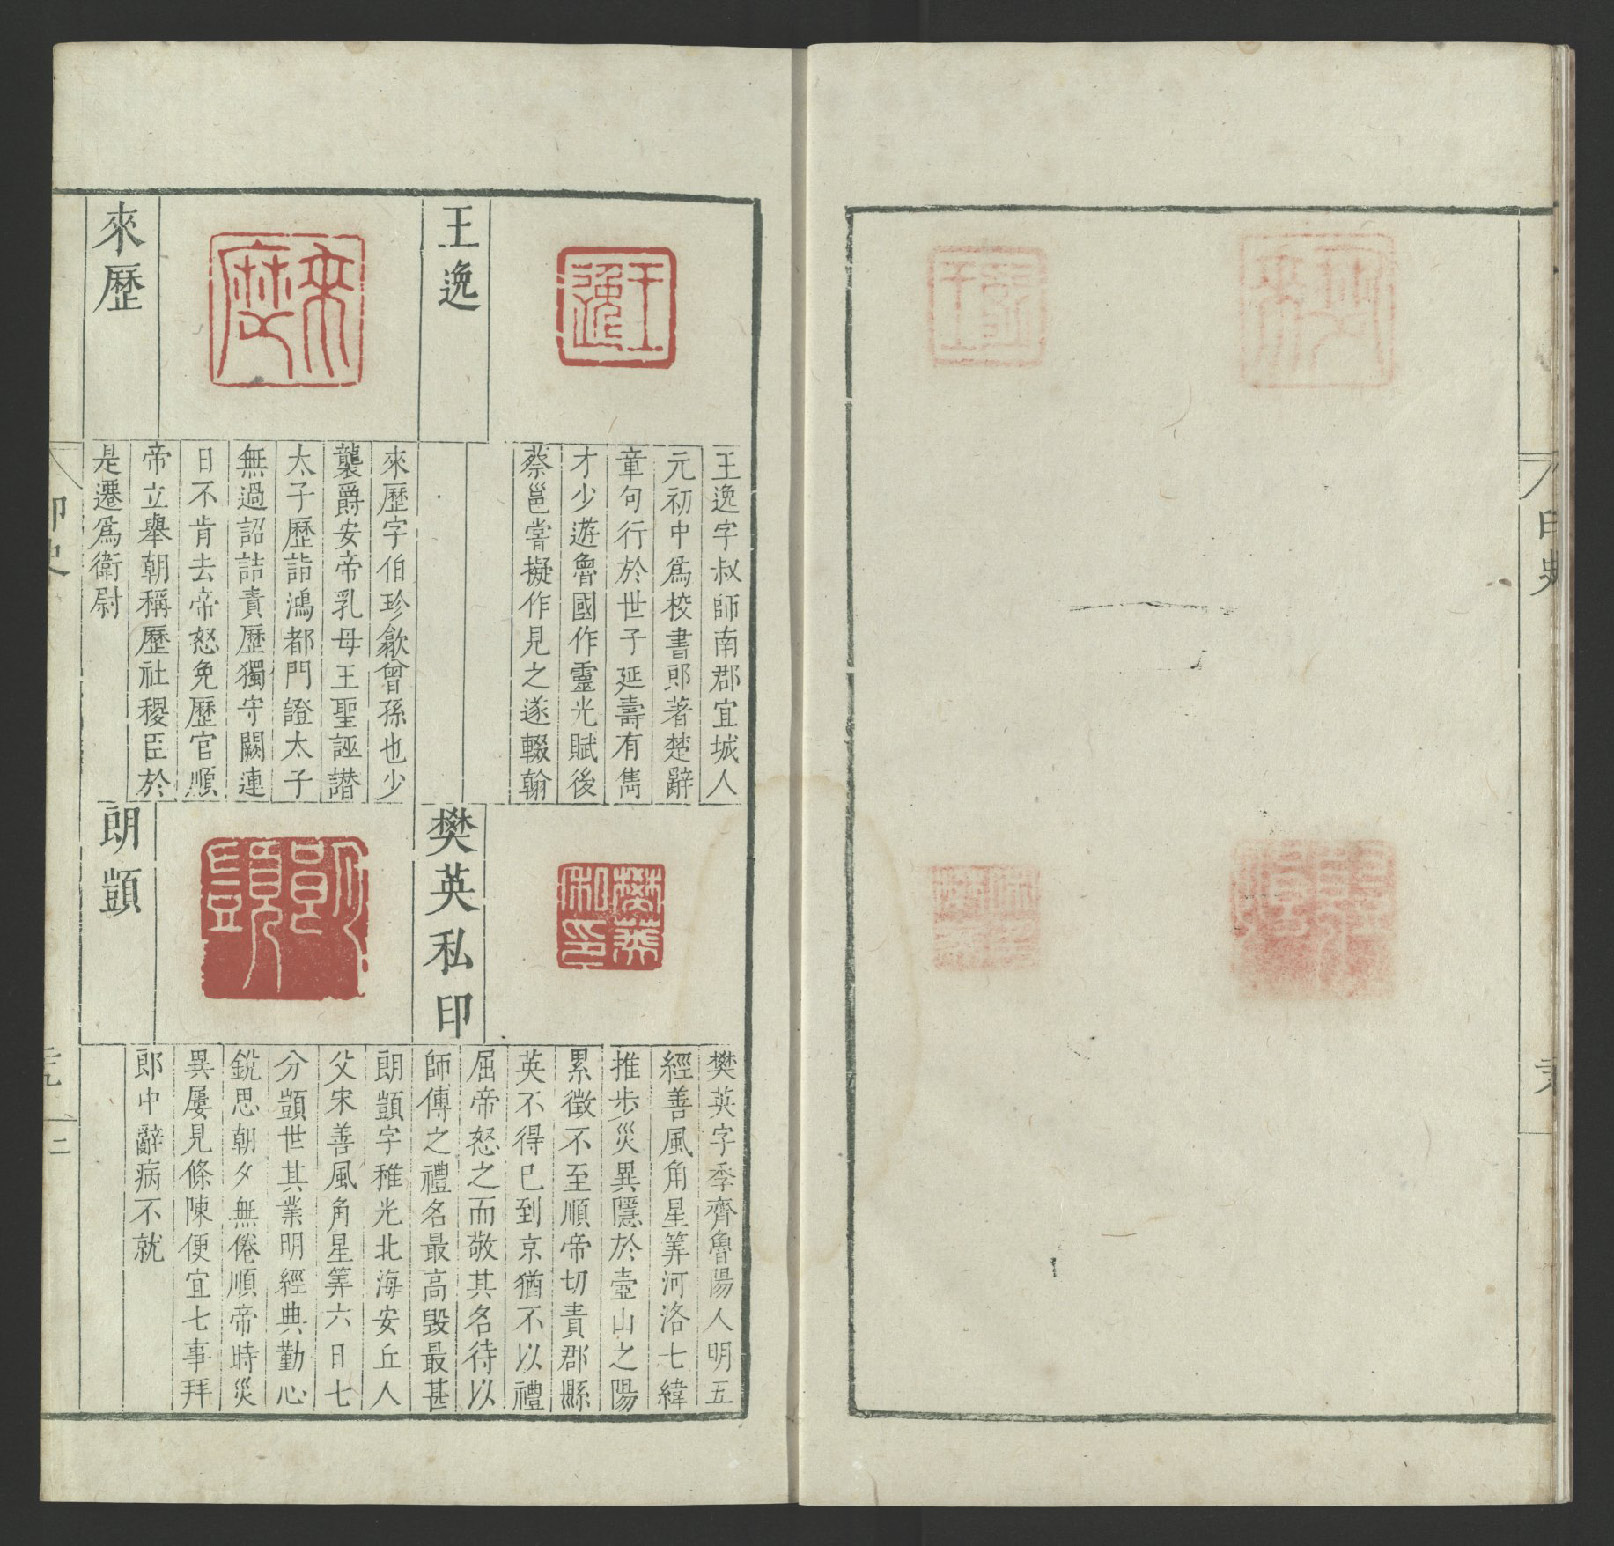 王逸
王逸字叔師南郡宜城人
元初中爲校書郎著楚辭
章句行於世子延壽有雋
才少遊魯國作靈光賦後
蔡邕嘗擬作見之遂輟翰
來歷
來歷字伯珍歙曾孫也少
襲爵安帝乳母王聖誣譖
太子歷詣鴻都門證太子
無過詔詰責歷獨守闕連
日不肯去帝怒免歷官順
帝立舉朝稱歷社稷臣於
是遷爲衛尉
樊英私印
樊英字季齊魯陽人明五
經善風角星筭河洛七緯
推步災異隱於壺山之陽
累徵不至順帝切責郡縣
英不得已到京猶不以禮
屈帝怒之而敬其名待以
師傅之禮名最高毀最甚
朗顗
朗顗字稚光北海安丘人
父宋善風角星筭六日七
分顗世其業明經典勤心
銳思朝夕無倦順帝時災
異屢見條陳便宜七事拜
郎中辭病不就
印史
二